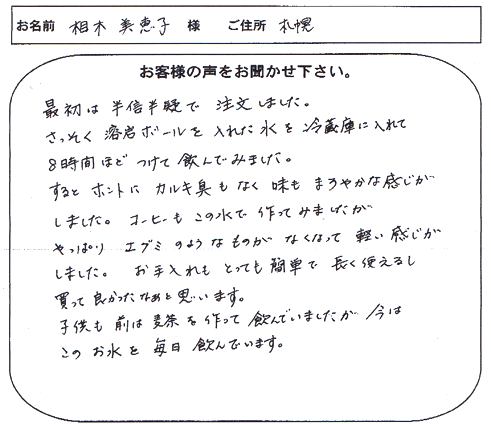 お名前 相木 美恵子 様 ご住所 札幌
お客様の声をお聞かせ下さい。
最初は半信半疑で注文しました。
さっそく溶岩ボールを入れた水を冷蔵庫に入れて
8時間ほどつけて飲んでみました。
するとホントにカルキ臭もなく味もまろやかな感じが
しました。コーヒーもこの水で作ってみましたが
やっぱりエグミのようなものがなくなって軽い感じが
しました。お手入れもとっても簡単で長く使えるし
買って良かったなあと思います。
子供も前は麦茶を作って飲んでいましたが今は
このお水を毎日飲んでいます。